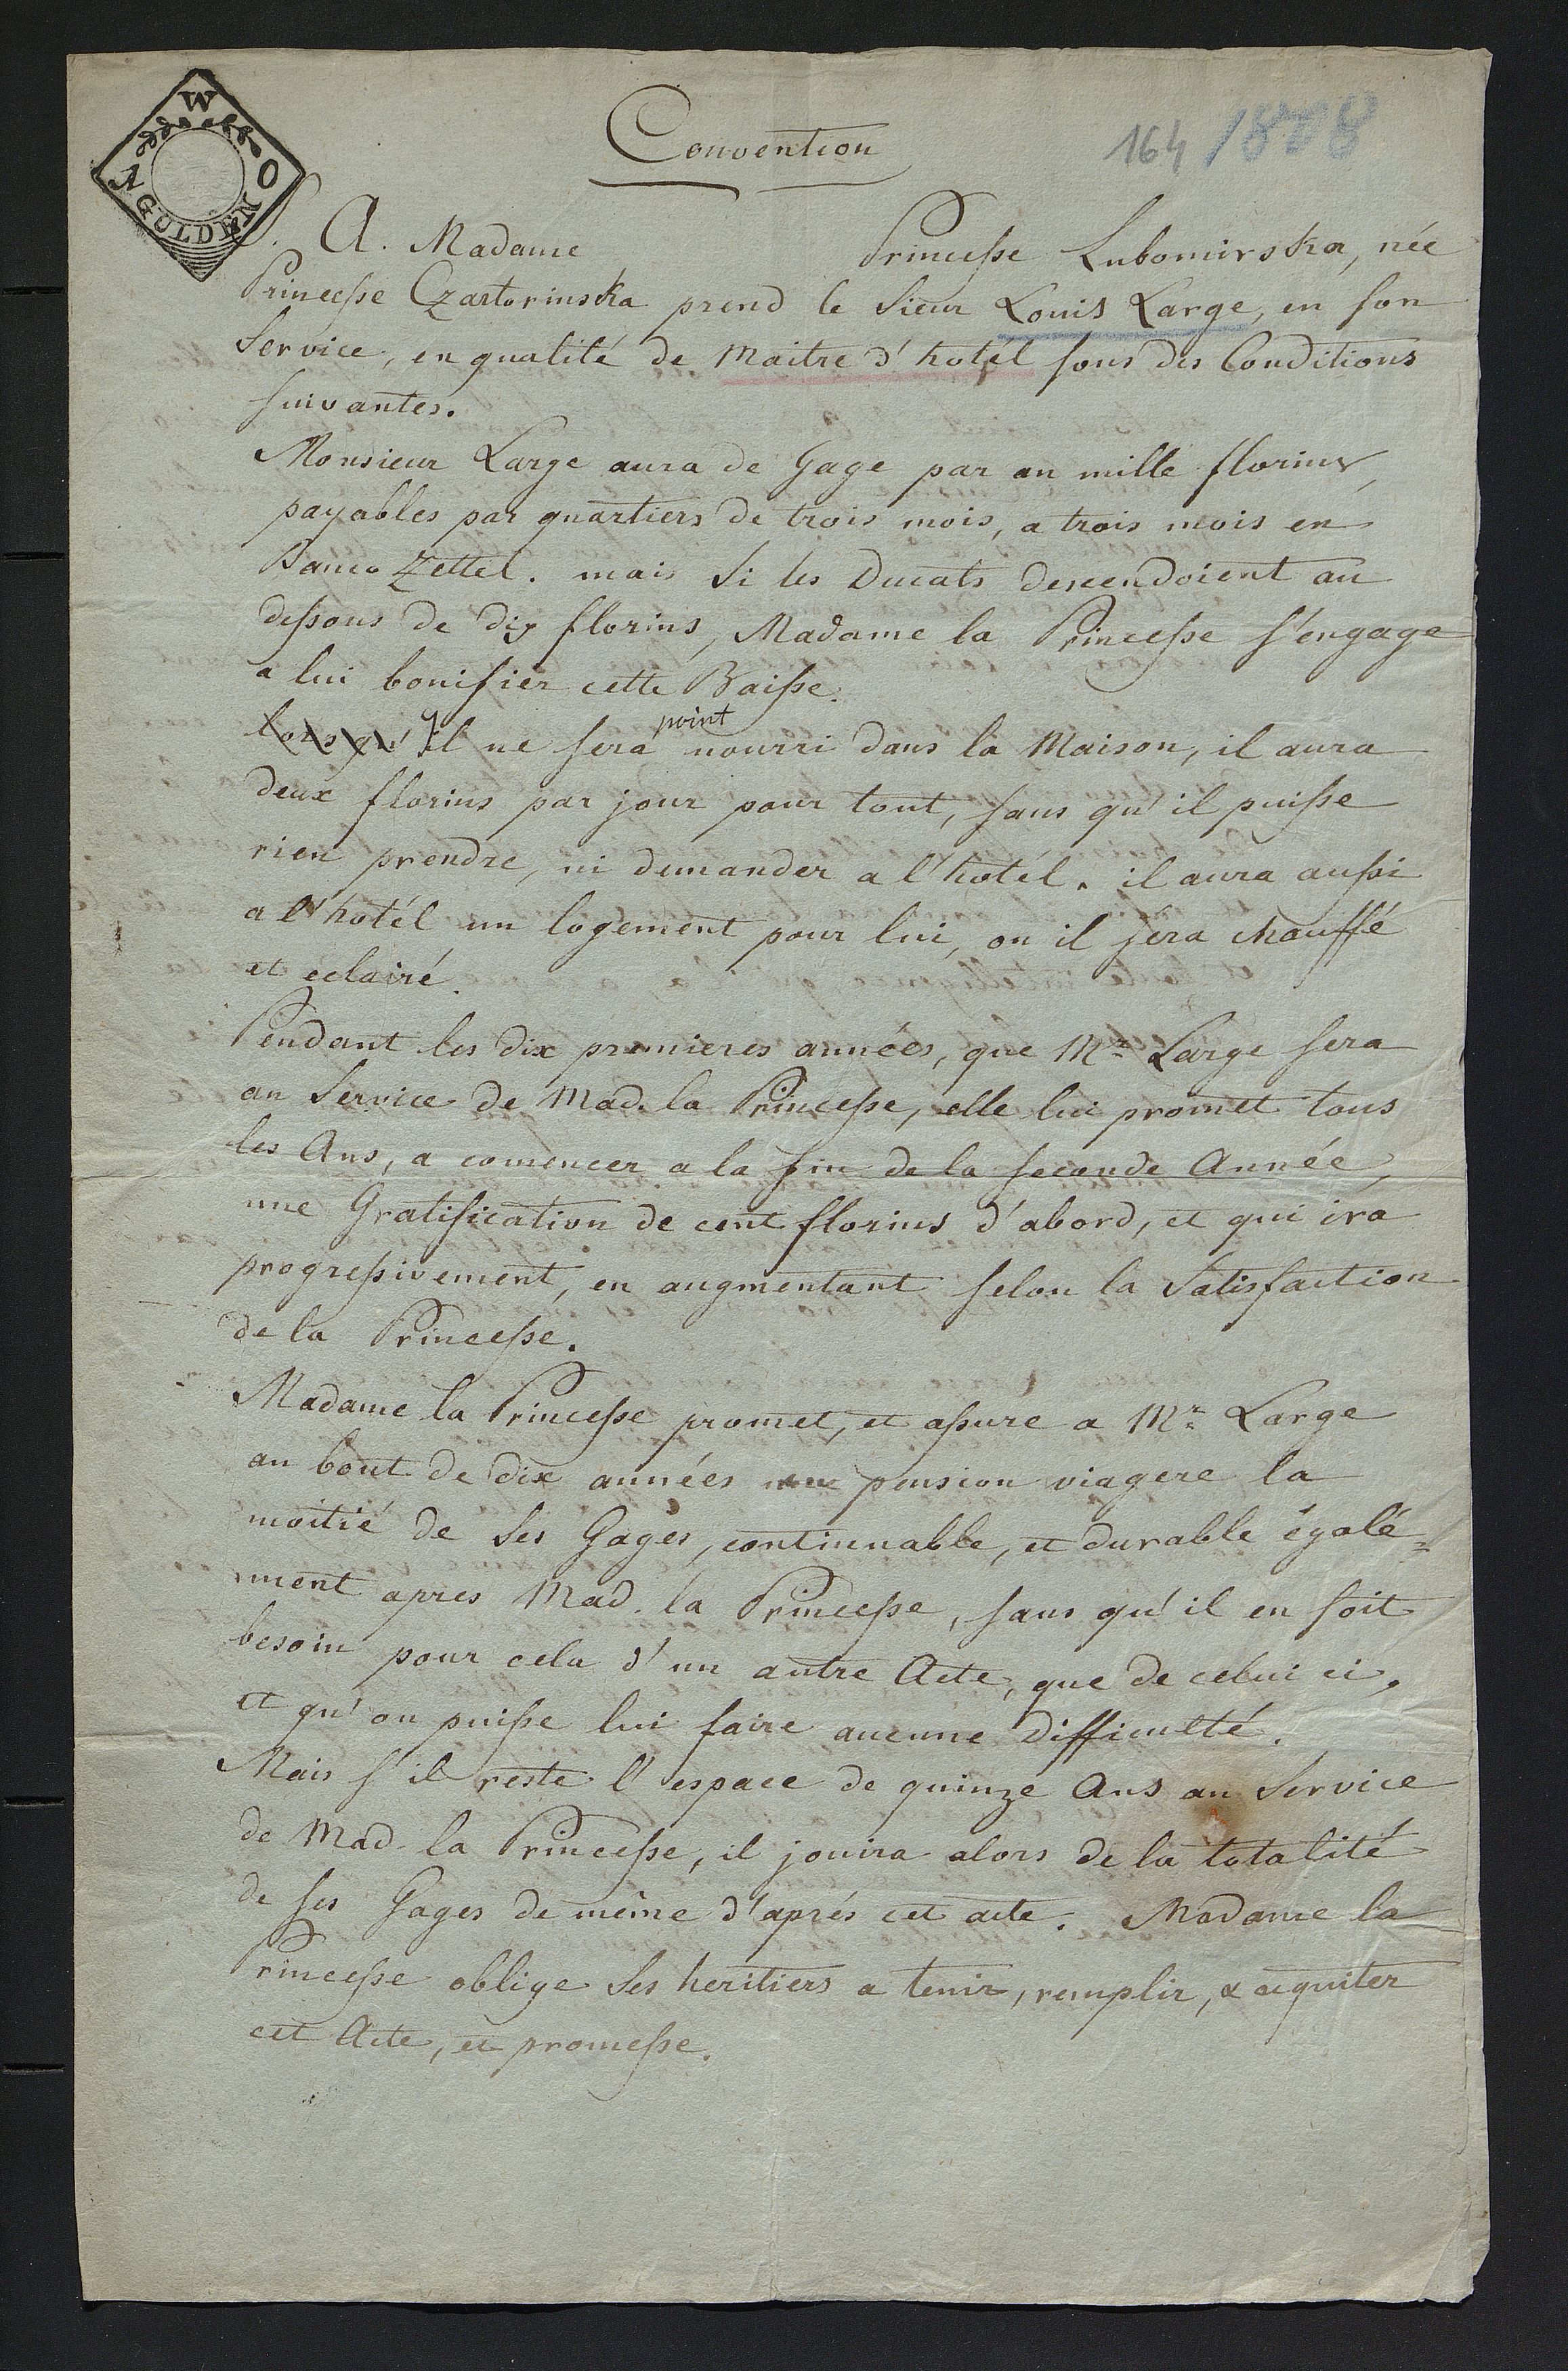 Convention
164 1808
W
N O
GULDEN
A. Madame Princesse Lubomirska, née
Princesse Czartorinska prend le Sieur Louis Large, en son
Service, en qualité de Maitre d'hotél sous des Conditions
suivantes.
Monsieur Large aura de Gage par an mille florins,
payables par quartiers de trois mois, a trois mois en
Banco Zettel. mais si les Ducats descendoient au
dessous de dix florins, Madame la Princesse s'engage
a lui bonifier cette Baisse.
lorsqu' Il ne sera point nourri dans la Maison, il aura
deux florins par jour pour tout, sans qu'il puisse
rien prendre, ni demander a l'hotél. il aura aussi
a l'hotél un logement pour lui, ou il sera chauffé
et eclairé.
Pendant les dix premieres années, que Mr. Large sera
au Service de Mad. la Princesse, elle lui promet tous
les Ans, a comencer a la fin de la seconde Année,
une Gratification de cent florins d'abord, et qui ira
progressivement, en augmentant selon la Satisfaction
de la Princesse.
Madame la Princesse promet, et assure a Mr. Large
au bout de dix années une pension viagere la
moitié de Ses Gages, continuable, et durable égalé=
ment apres Mad. la Princesse, sans qu'il en soit
besoin pour cela d'un autre Acte, que de celui ci,
et qu'on puisse lui faire aucune Difficulté.
Mais s'il reste l'espace de quinze Ans au Service
de Mad. la Princesse, il jouira alors de la totalité
de ses Gages de même d'aprés cet acte. Madame la
Princesse oblige Ses heritiers a tenir, remplir, & aquiter
cet Acte, et promesse.